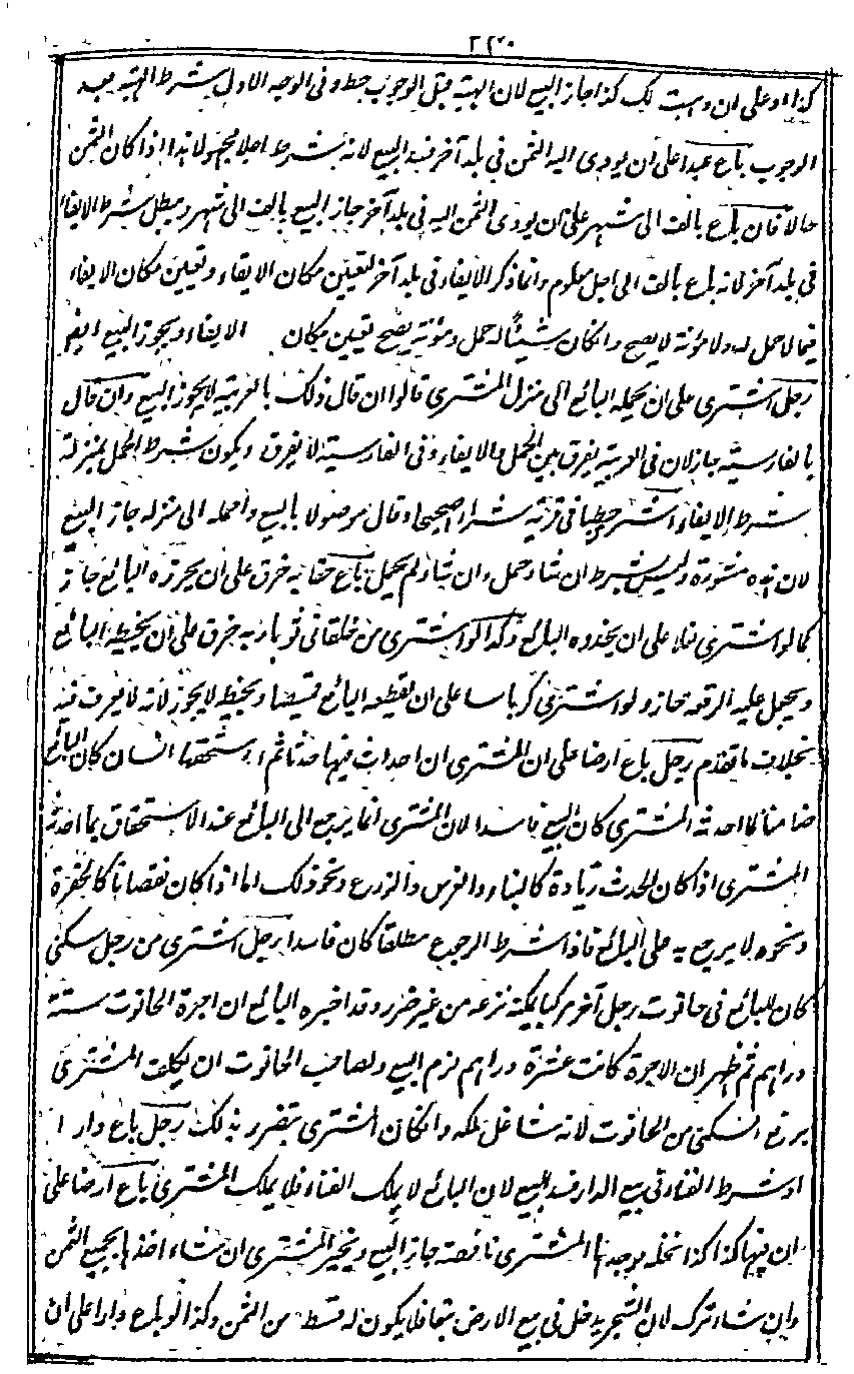 كذا او على ان وهبت لك كذا جاز البيع لان الهبة قبل الوجوب حط وفي الوجه الاول شرط الهبة بعد
الوجوب باع عبدا على ان يودى اليه الثمن في بلد آخر فسد البيع لانه شرط اجلا مجهولا هذا اذا كان الثمن
حالا فان باع بالف الى شهر على ان يودى الثمن اليه في بلد آخر جاز البيع بالف الى شهر ويبطل شرط الايفاء
في بلد آخر لانه باع بالف الى اجل معلوم وانما ذكر الايفاء في بلد آخر لتعيين مكان الايفاء وتعيين مكان الايفاء
فيما لا حمل له ولا مؤنة لا يصح وان كان شيئا له حمل ومؤنة يصح تعيين مكان الايفاء ويجوز البيع ايضا
رجل اشترى على ان يحمله البائع الى منزل المشترى قالوا ان قال ذلك بالعربية لا يجوز البيع وان قال
بالفارسية جاز لان في العربية يفرق بين الحمل والايفاء وفى الفارسية لا يفرق ويكون شرط الحمل بمنزلة
شرط الايفاء اشترى حطبا في قرية شراء صحيحا وقال موصولا بالبيع واحمله الى منزله جاز البيع
لان هذه مشورة وليس بشرط ان شاء حمل وان شاء لم يحمل باع خفا به خرق على ان يخرزه البائع جاز
كما لو اشترى نعلا على ان يحذوه البائع وكذا لو اشترى من خلقانى ثوبا وبه خرق على ان يخيطه البائع
ويجعل عليه الرقعة جاز ولو اشترى كرباسا على ان يقطعه البائع قميصا ويخيطه لا يجوز لانه لا يعرف فيه
بخلاف ما تقدم رجل باع ارضا على ان المشترى ان احدث فيها حدثا ثم استحقها انسان كان البائع
ضامنا لما احدثه المشترى كان البيع فاسدا لان المشترى انما يرجع الى البائع عند الاستحقاق بما احدثه
المشترى اذا كان المحدث زيادة كالبناء والغرس والزرع ونحو ذلك اما اذا كان نقصانا كالحفرة
ونحوه لا يرجع به على البائع فاذا شرط الرجوع مطلقا كان فاسدا رجل اشترى من رجل سكنى
كان للبائع في حانوت رجل آخر مركبا يمكنه نزعه من غير ضرر وقد اخبره البائع ان اجرة الحانوت ستة
دراهم ثم ظهر ان الاجرة كانت عشرة دراهم لزم البيع ولصاحب الحانوت ان يكلف المشترى
برفع السكنى من الحانوت لانه شاغل ملكه وان كان المشترى يتضرر بذلك رجل باع دارا
او شرط الفناء في بيع الدار فسد البيع لان البائع لا يملك الفناء فلا يملك المشترى باع ارضا على
ان فيها كذا كذا نخلة فوجدها المشترى ناقصة جاز البيع ويخير المشترى ان شاء اخذها بجميع الثمن
وان شاء ترك لان الشجر يدخل في بيع الارض تبعا فلا يكون له قسط من الثمن وكذا لو باع دارا على ان